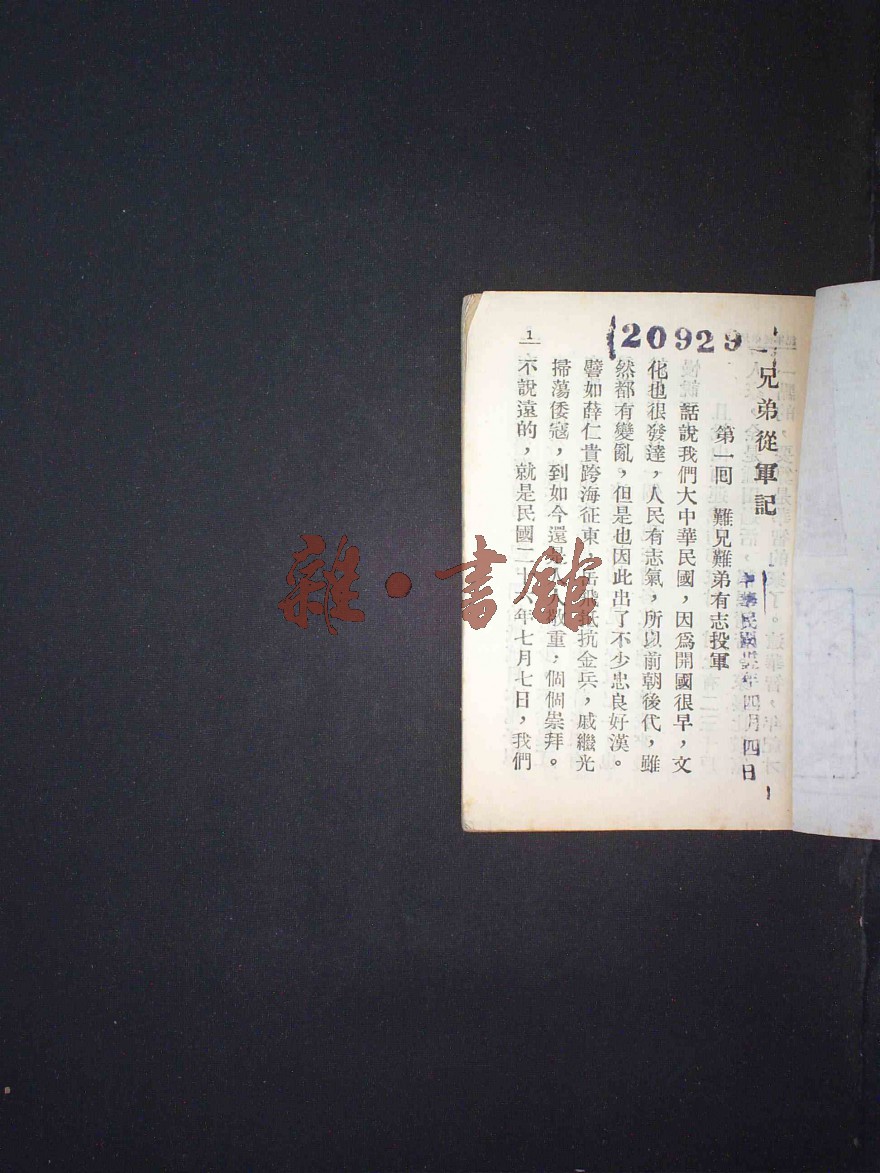 20929
兄弟從軍記
第一回 難兄難弟有志投軍
話說我們大中華民國，因爲開國很早，文
化也很發達，人民有志氣，所以前朝後代，雖
然都有變亂，但是也因此出了不少忠良好漢。
譬如薛仁貴跨海征東，岳飛抵抗金兵，戚繼光
掃蕩倭寇，到如今還是敬重，個個崇拜。
不說遠的，就是民國二十六年七月七日，我們
1
中華民國 年四月四日
雜·書館